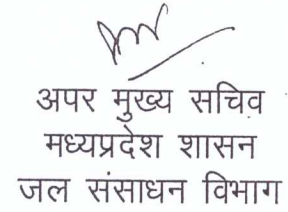 अपर मुख्य सचिव
मध्यप्रदेश शासन
जल संसाधन विभाग